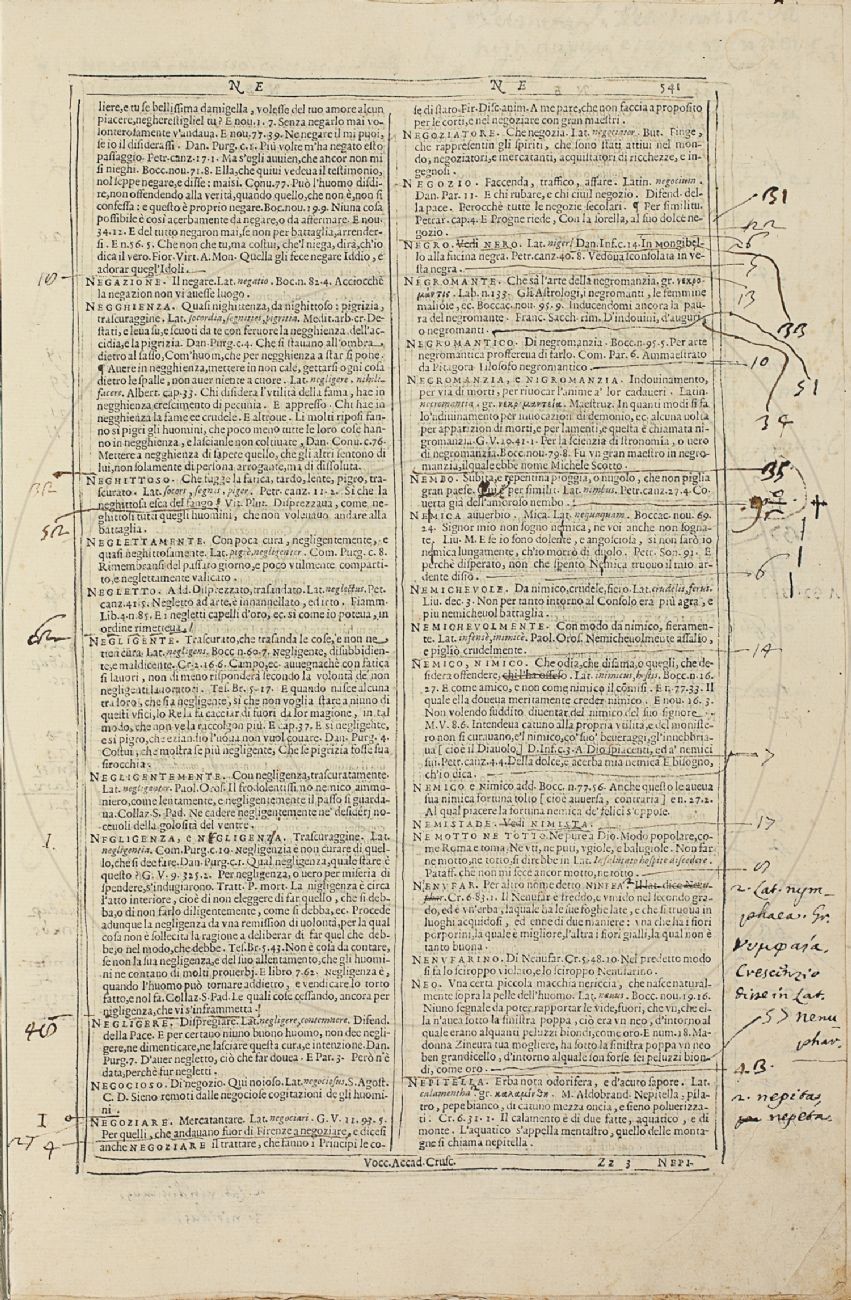 N E
N E
541
liere, e tu se bellissima damigella, volesse del tuo amore alcun
piacere, negherestigliel tu? E nou. 1. 7. Senza negarlo mai vo-
lonterosamente v'andaua. E nou. 77. 39. Ne negare il mi puoi,
se io il disiderassi. Dan. Purg. c. 1. Più volte m'ha negato esto
passaggio. Petr. canz. 17. 1. Ma s'egli auuien, che ancor non mi
si nieghi. Bocc. nou. 71. 8. Ella, che quiui vedeua il testimonio,
nol seppe negare, e disse: maisì. Conu. 77. Può l'huomo disdi-
re, non offendendo alla verità, quando quello, che non è, non si
confessa: e questo è proprio negare. Boc. nou. 19. 9. Niuna cosa
possibile è così acerbamente da negare, o da affermare. E nou.
34. 12. E del tutto negaron mai, se non per battaglia, arrender-
si. E n. 56. 5. Che non che tu, ma costui, che'l niega, dirà, ch'io
dica il vero. Fior. Virt. A. Mon. Quella gli fece negare Iddio, e
adorar quegl'Idoli.
NEGAZIONE. Il negare. Lat. negatio. Boc. n. 82. 4. Acciocchè
la negazion non vi auesse luogo.
NEGGHIENZA. Quasi nighittenza, da nighittoso: pigrizia,
trascuraggine. Lat. socordia, segnities, pigritia. Medit. arb. cr. De-
stati, e leua su, e scuoti da te con feruore la negghienza dell'ac-
cidia, e la pigrizia. Dan. Purg. c. 4. Che si stauano all'ombra
dietro al sasso, Com'huom, che per negghienza a star si pone.
¶ Auere in negghienza, mettere in non cale, gettarsi ogni cosa
dietro le spalle, non auer niente a cuore. Lat. negligere, nihili
facere. Albert. cap. 33. Chi disidera l'vtilità della fama, hae in
negghienza crescimento di pecunia. E appresso. Chi hae in
negghienza la fama è crudele. E altroue. Li molti riposi fan-
no sì pigri gli huomini, che poco meno tutte le loro cose han-
no in negghienza, e lascianle non coltiuate, Dan. Conu. c. 76.
Mettere a negghienza di sapere quello, che gli altri sentono di
lui, non solamente di persona arrogante, ma di dissoluta.
NEGHITTOSO. Che fugge la fatica, tardo, lento, pigro, tra-
scurato. Lat. socors, segnis, piger. Petr. canz. 11. 2. Sì che la
neghittosa esca del fango. ¶ Vit. Plut. Disprezzaua, come ne-
ghittosi tutti quegli huomini, che non voleuano andare alla
battaglia.
NEGLETTAMENTE. Con poca cura, negligentemente, e
quasi neghittosamente. Lat. pigrè, negligenter. Com. Purg. c. 8.
Rimembransi del passato giorno, e poco vtilmente comparti-
to, e neglettamente valicato.
NEGLETTO. Add. Disprezzato, trasandato. Lat. neglectus. Pet.
canz. 41. 5. Negletto ad arte, e innannellato, ed irto. Fiamm.
Lib. 4. n. 85. E i negletti capelli d'oro, ec. sì come io poteua, in
ordine rimetteua.
NEGLIGENTE. Trascurato, che trasanda le cose, e non ne
tien cura. Lat. negligens. Bocc. n. 60. 7. Negligente, disubbidien-
te, e maldicente. Cr. 2. 16. 6. Campo, ec. auuegnachè con fatica
si lauori, non di meno risponderà secondo la volontà de' non
negligenti lauoratori. Tes. Br. 5. 17. E quando nasce alcuna
tra loro, che sia negligente, sì che non voglia stare a niuno di
questi vfici, lo Re la fa cacciar di fuori da lor magione, in tal
modo, che non ve la raccolgon più. E cap. 37. E sì negligente,
e sì pigro, che ezian dio l'uoua non vuol couare. Dan. Purg. 4.
Costui, che mostra se più negligente, Che se pigrizia fosse sua
sirocchia.
NEGLIGENTEMENTE. Con negligenza, trascuratamente.
Lat. negligenter. Paol. Oros. Il frodolentissimo nemico ammu-
niero, come lentamente, e negligentemente il passo si guarda-
ua. Collaz. S. Pad. Ne cadere negligentemente ne' desiderj no-
ceuoli della golosità del ventre.
NEGLIGENZA, e NIGLIGENZA. Trascuraggine. Lat.
negligentia. Com. Purg. c. 10. Negligenzia è non curare di quel-
lo, che si dee fare. Dan. Purg. c. 1. Qual negligenza, quale stare è
questo? G. V. 9. 325. 2. Per negligenza, o uero per miseria di
spendere, s'indugiarono. Tratt. P. mort. La nigligenza è circa
l'atto interiore, cioè di non eleggere di far quello, che si deb-
ba, o di non farlo diligentemente, come si debba, ec. Procede
adunque la negligenza da vna remission di volontà, per la qual
cosa non è sollecita la ragione a deliberar di far quel che deb-
be, o nel modo, che debbe. Tes. Br. 5. 43. Non è cosa da contare,
se non la sua negligenza, e del suo allentamento, che gli huomi-
ni ne contano di molti prouerbj. E libro 7. 62. Negligenza è,
quando l'huomo può tornare addietro, e vendicare lo torto
fatto, e nol fa. Collaz. S. Pad. Le quali cose cessando, ancora per
nigligenza, che vi s'inframmetta.
NEGLIGERE. Dispregiare. Lat. negligere, contemnere. Difend.
della Pace. E per certano niuno buono huomo, non dee negli-
gere, ne dimenticare, ne lasciare questa cura, e intenzione. Dan.
Purg. 7. D'auer negletto, ciò che far douea. E Par. 3. Però n'è
data, perchè fur negletti.
NEGOCIOSO. Di negozio. Qui noioso. Lat. negociosus. S. Agost.
C. D. Sieno remoti dalle negociose cogitazioni de gli huomi-
ni.
NEGOZIARE. Mercatantare. Lat. negociari. G. V. 11. 93. 5.
Per quelli, che andauano fuor di Firenze a negoziare, e dicesi
anche NEGOZIARE il trattare, che fanno i Principi le co-
se di stato. Fir. Disc. anim. A me pare, che non faccia a proposito
per le corti, e nel negoziare con gran maestri.
NEGOZIATORE. Che negozia. Lat. negociator. But. Finge,
che rappresentin gli spiriti, che sono stati attiui nel mon-
do, negoziatori, e mercatanti, acquistatori di ricchezze, e in-
gegnosi.
NEGOZIO. Faccenda, traffico, affare. Latin. negocium.
Dan. Par. 11. E chi rubare, e chi ciuil negozio. Difend. del-
la pace. Perocchè tutte le negozie secolari. ¶ Per similitu.
Petrar. cap. 4. E Progne riede, Con la sorella, al suo dolce ne-
gozio.
NEGRO. Vedi NERO. Lat. niger. Dan. Inf. c. 14. In Mongibel-
lo alla fucina negra. Petr. canz. 40. 8. Vedoua sconsolata in ve-
sta negra.
NEGROMANTE. Che sà l'arte della negromanzia, gr. νεκρο-
μάντις. Lab. n. 133. Gli Astrologi, i negromanti, le femmine
maliose, ec. Boccac. nou. 95. 9. Inducendomi ancora la pau-
ra del negromante. Franc. Sacch. rim. D'indouini, d'auguri
o negromanti.
NEGROMANTICO. Di negromanzia. Boc. n. 95. 5. Per arte
negromantica proffereua di farlo. Com. Par. 6. Ammaestrato
da Pitagora Filosofo negromantico.
NEGROMANZIA, e NIGROMANZIA. Indouinamento,
per via di morti, per riuocar l'anime a' lor cadaueri. Latin.
necromantia, gr. νεκρομαντεία. Maestruz. In quanti modi si fa
lo'ndiuinamento per inuocazion di demonio, ec. alcuna uolta
per apparizion di morti, e per lamenti, e questa è chiamata ni-
gromanzia. G. V. 10. 41. 1. Per la scienzia di stronomia, o uero
di negromanzia. Bocc. nou. 79. 8. Fu vn gran maestro in negro-
manzia, il quale ebbe nome Michele Scotto.
NEMBO. Subita, e repentina pioggia, o nugolo, che non piglia
gran paese. Qui per similit. Lat. nimbus. Petr. canz. 27. 4. Co-
uerta già dell'amoroso nembo.
NEMICA auuerbio. Mica. Lat. nequaquam. Boccac. nou. 69.
24. Signor mio non sogno nemica, ne voi anche non sogna-
te, Liu. M. E se io sono dolente, e angosciosa, sì non sarò io
nemica lungamente, ch'io morrò di duolo. Petr. Son. 91. E
perchè disperato, non che spento Nemica truouo il mio ar-
dente disio.
NEMICHEVOLE. Da nimico, crudele, fiero. Lat. crudelis, ferus.
Liu. dec. 3. Non per tanto intorno al Consolo era più agra, e
più nemicheuol battaglia.
NEMICHEVOLMENTE. Con modo da nimico, fieramen-
te. Lat. infensè, inimicè. Paol. Oros. Nemicheuolmente assalìo,
e pigliò crudelmente.
NEMICO, NIMICO. Che odia, che disama, o quegli, che de-
sidera offendere, chi l'ha offeso. Lat. inimicus, hostis. Bocc. n. 16.
27. E come amico, e non come nimico il comisi. E n. 77. 33. Il
quale ella doueua meritamente creder nimico. E nou. 16. 3.
Non volendo suddito diuentar del nimico del suo signore.
M. V. 8. 6. Intendeua catuno alla propria vtilità, e del moniste-
ro non si curauano, e'l nimico, co' suo' beueraggi, gl'innebbria-
ua [cioè il Diauolo] D. Inf. c. 3. A Dio spiacenti, ed a' nemici
sui. Petr. canz. 4. 4. Della dolce, e acerba mia nemica È bisogno,
ch'io dica.
NEMICO e Nimico add. Bocc. n. 77. 56. Anche questo le aueua
sua nimica fortuna tolto [cioè auuersa, contraria] e n. 27. 2.
Al qual piacere la fortuna nemica de' felici s'oppose.
NEMISTADE. Vedi NIMISTA.
NE MOTTO NE TOTTO. Ne pure a Dio. Modo popolare, co-
me Roma e toma, Ne vti, ne puti, vgiole, e balugiole. Non far
ne motto, ne totto, si direbbe in Lat. Insalutato hospite discedere.
Pataff. che non mi fece ancor motto, ne totto.
NENVFAR. Per altro nome detto NINFEA. Il lat. dice Nenu-
phar. Cr. 6. 83. 1. Il Nenufar è freddo, e vmido nel secondo gra-
do, ed è vn'erba, la quale ha le sue foglie late, e che si truoua in
luoghi acquidosi, ed enne di due maniere: vna che ha i fiori
porporini, la quale è migliore, l'altra i fiori gialli, la qual non è
tanto buona.
NENVFARINO. Di Neufar. Cr. 5. 48. 10. Nel predetto modo
si fa lo sciroppo violato, e lo sciroppo Nenufarino.
NEO. Vna certa piccola macchia nericcia, che nasce natural-
mente sopra la pelle dell'huomo. Lat. neuus. Bocc. nou. 19. 16.
Niuno segnale da poter rapportare le vide, fuori, che vn, che el-
la n'auea sotto la sinistra poppa, ciò era vn neo, d'intorno al
quale erano alquanti peluzzi biondi, come oro. E num. 18. Ma-
donna Zineura tua mogliere, ha sotto la sinistra poppa vn neo
ben grandicello, d'intorno al quale son forse sei peluzzi bion-
di, come oro.
NEPITELLA. Erba nota odorifera, e d'acuto sapore. Lat.
calamentha gr. καλαμίνθη. M. Aldobrand. Nepitella, pila-
tro, pepe bianco, di catuno mezza oncia, e sieno poluerizza-
ti. Cr. 6. 31. 1. Il calamento è di due fatte, aquatico, e di
monte. L'aquatico s'appella mentastro, quello delle monta-
gne si chiama nepitella.
Vocc. Accad. Crusc.
Zz 3
NEPI-
10
32
52
62
I.
40
I
27 4
31
22
6
5
13
33
10
51
34
35
6
14
7
17
2. Lat. nym-
phaea. Gr.
νυμφαία.
Crescenzio
dice in Lat.
53 nenu
phar.
43
2. nepitas
nepeta.